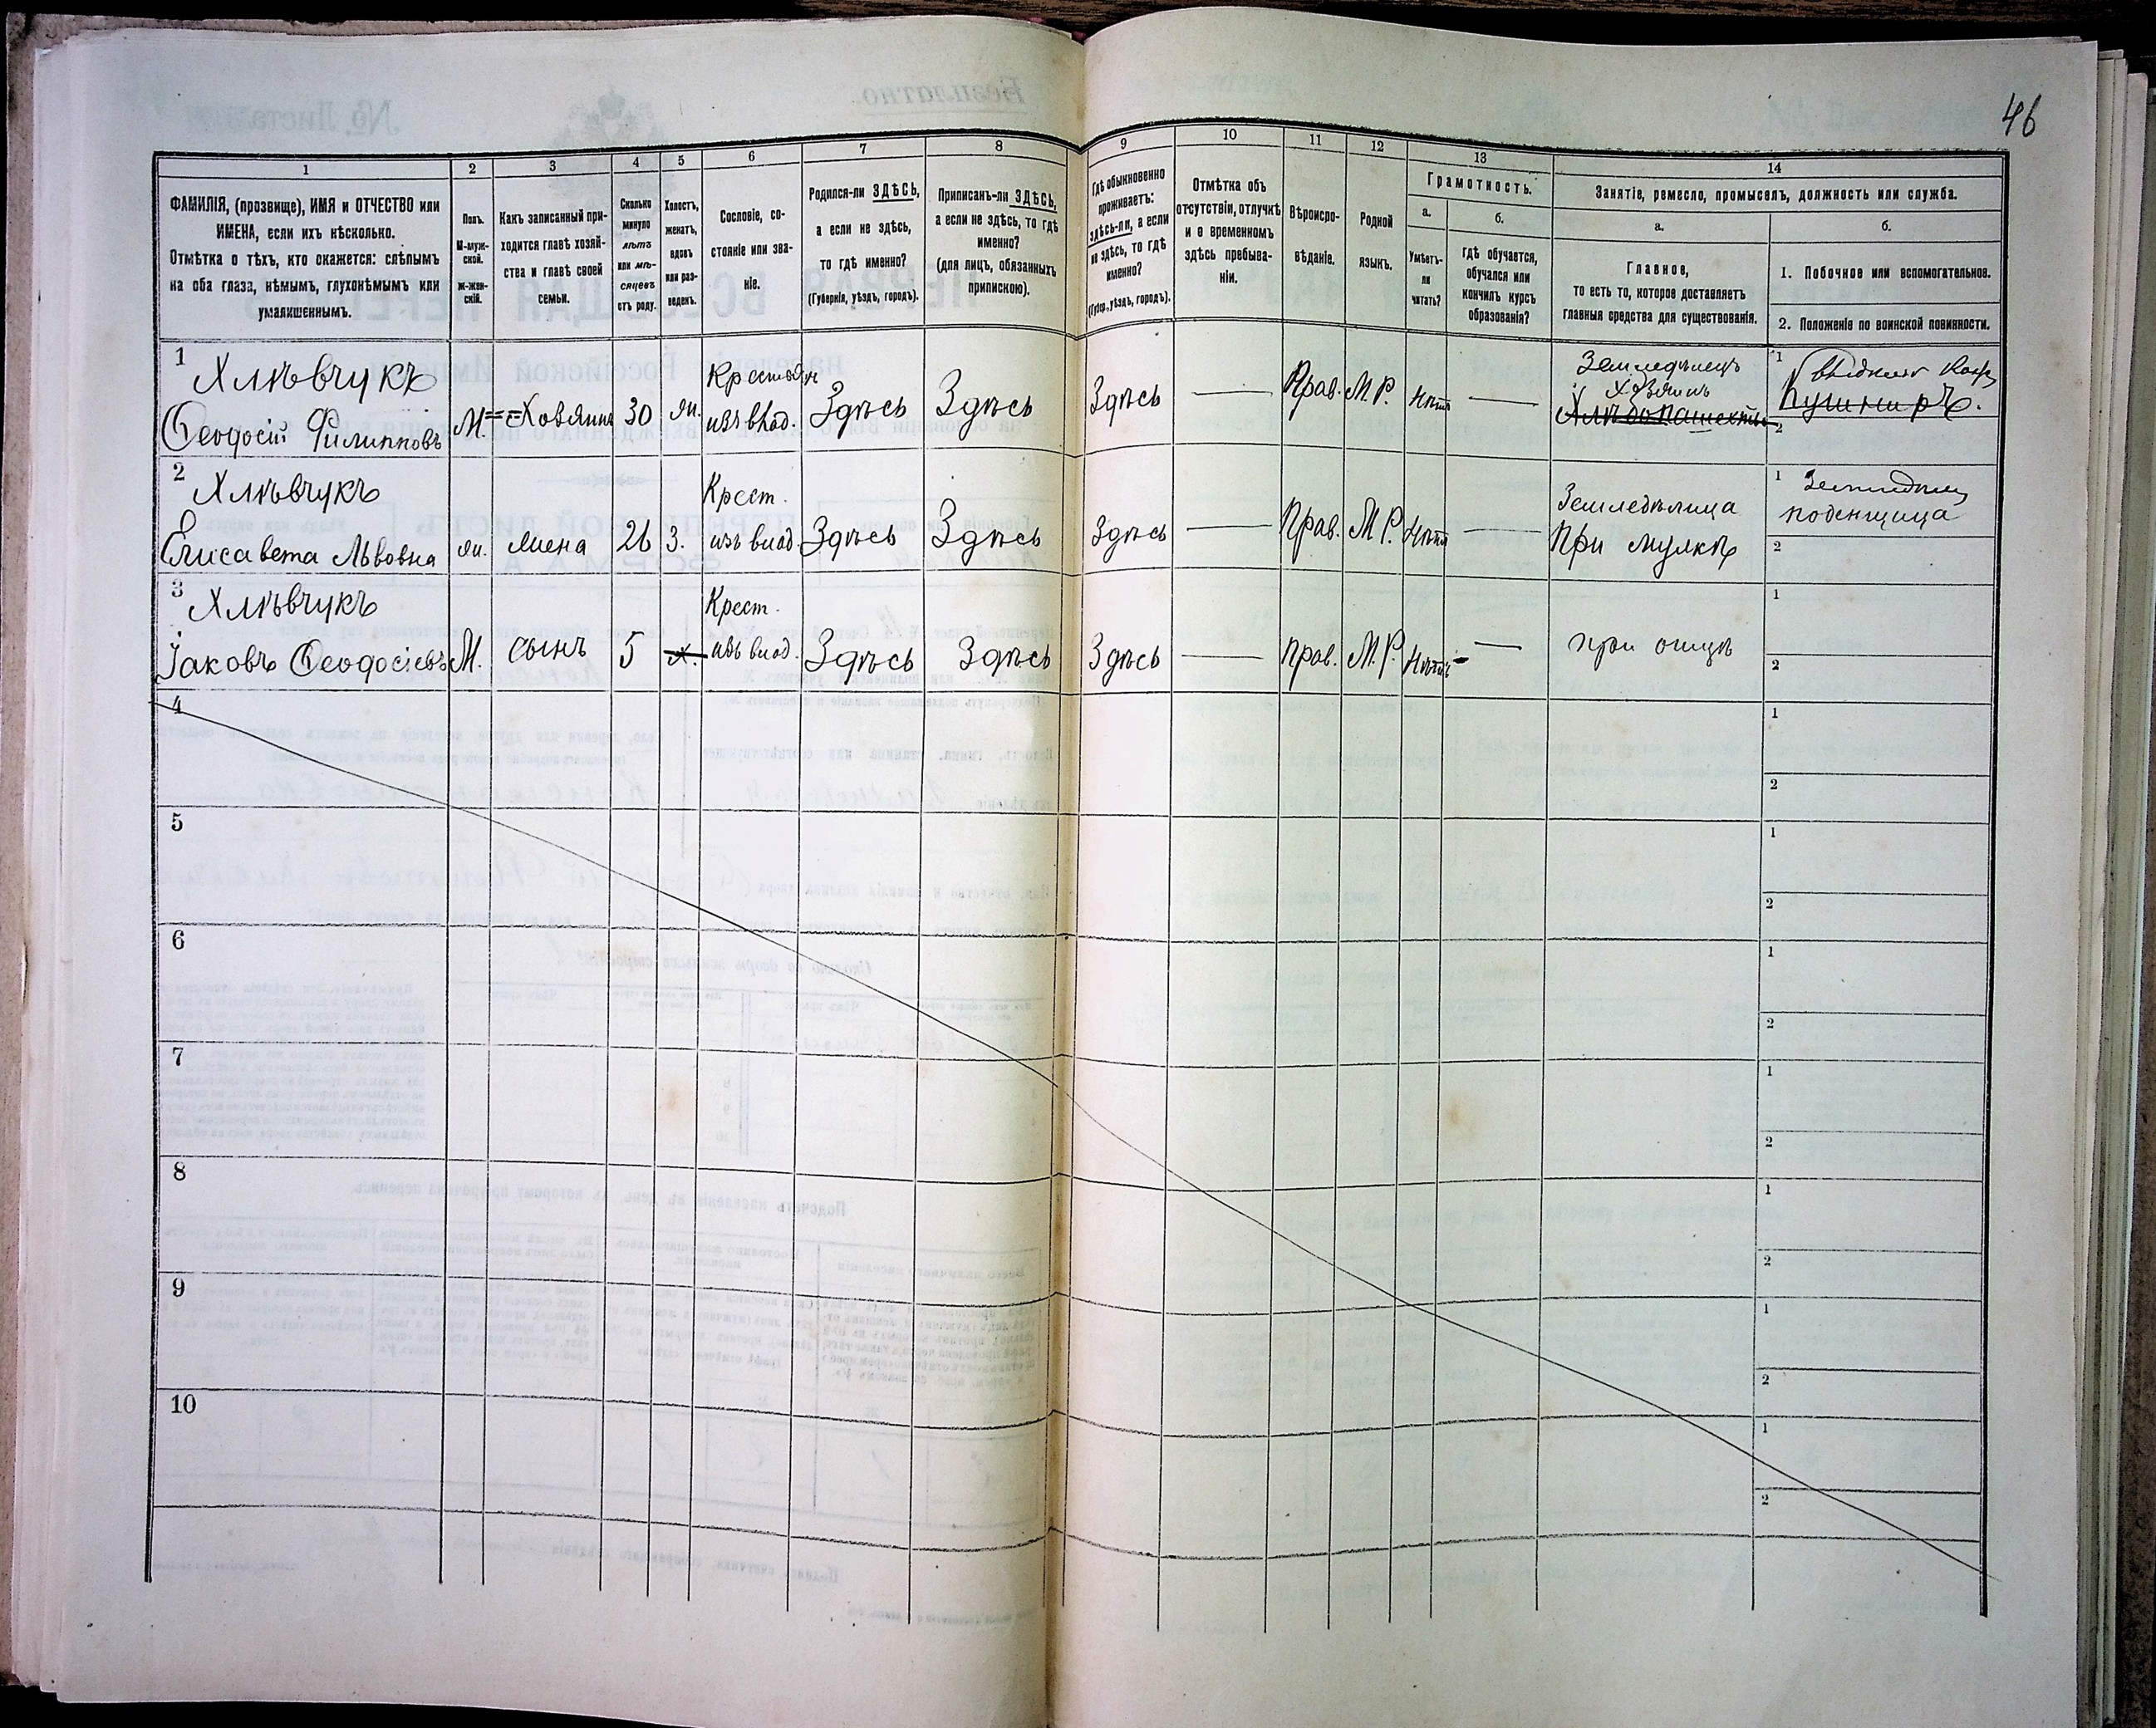 46
1
2
3
4
5
6
7
8
9
10
11
12
13
14
ФАМИЛІЯ, (прозвище), ИМЯ и ОТЧЕСТВО или
ИМЕНА, если ихъ нѣсколько.
Отмѣтка о тѣхъ, кто окажется: слѣпымъ
на оба глаза, нѣмымъ, глухонѣмымъ или
умалишеннымъ.
Полъ.
М-муж-
ской.
Ж-жен-
скій.
Какъ записанный при-
ходится главѣ хозяй-
ства и главѣ своей
семьи.
Сколько
минуло
лѣтъ
или мѣ-
сяцевъ
отъ роду.
Холостъ,
женатъ,
вдовъ
или раз-
веденъ.
Сословіе, со-
стояніе или зва-
ніе.
Родился-ли ЗДѢСЬ,
а если не здѣсь,
то гдѣ именно?
(Губернія, уѣздъ, городъ).
Приписанъ-ли ЗДѢСЬ,
а если не здѣсь, то гдѣ
именно?
(для лицъ, обязанныхъ
припискою).
Гдѣ обыкновенно
проживаетъ:
здѣсь-ли, а если
не здѣсь, то гдѣ
именно?
(Губер., уѣздъ, городъ).
Отмѣтка объ
отсутствіи, отлучкѣ
и о временномъ
здѣсь пребыва-
ніи.
Вѣроиспо-
вѣданіе.
Родной
языкъ.
Грамотность.
а.
Умѣетъ-
ли
читать?
б.
Гдѣ обучается,
обучался или
кончилъ курсъ
образованія?
Занятіе, ремесло, промыселъ, должность или служба.
а.
Главное,
то есть то, которое доставляетъ
главныя средства для существованія.
б.
1. Побочное или вспомогательное.
2. Положеніе по воинской повинности.
1
Хлѣвчукъ
Ѳеодосій Филипповъ
М.
Хозяинъ
30
Ж.
Крестьян
изъ влад.
Здѣсь
Здѣсь
Здѣсь
Прав.
М.Р.
Нѣтъ
Земледѣлецъ
Хозяинъ
1
Кушниръ.
2
2
Хлѣвчукъ
Елисавета Львовна
ж.
жена
26
З.
Крест.
изъ влад.
Здѣсь
Здѣсь
Здѣсь
Прав.
М.Р.
Нѣтъ
Земледѣлица
При мужѣ
1
поденщица
2
3
Хлѣвчукъ
Іаковъ Ѳеодосіевъ
М.
сынъ
5
х.
Крест.
изъ влад.
Здѣсь
Здѣсь
Здѣсь
прав.
М.Р.
Нѣтъ
при отцѣ
1
2
4
1
2
5
1
2
6
1
2
7
1
2
8
1
2
9
1
2
10
1
2